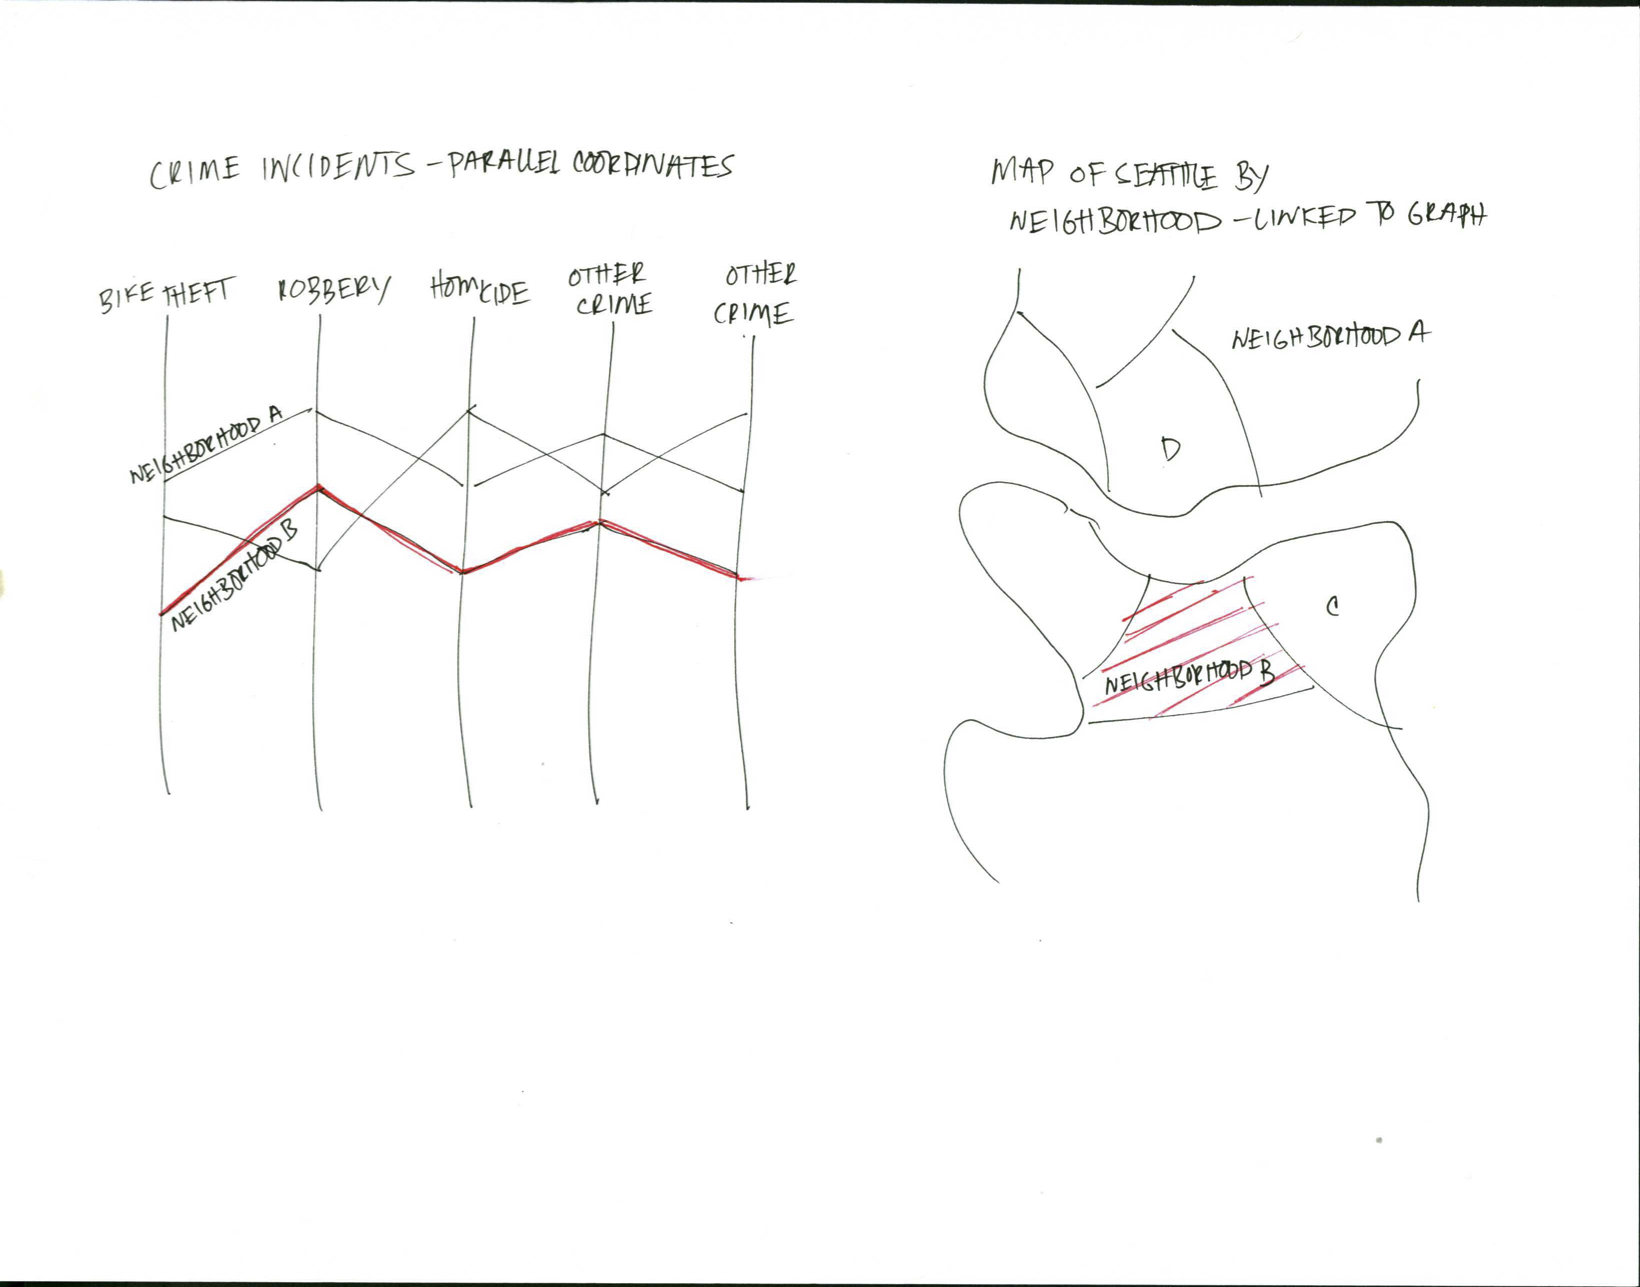 CRIME INCIDENTS - PARALLEL COORDINATES
BIKE THEFT
ROBBERY
HOMICIDE
OTHER
CRIME
OTHER
CRIME
NEIGHBORHOOD A
NEIGHBORHOOD B
MAP OF SEATTLE BY
NEIGHBORHOOD - LINKED TO GRAPH
NEIGHBORHOOD A
D
C
NEIGHBORHOOD B